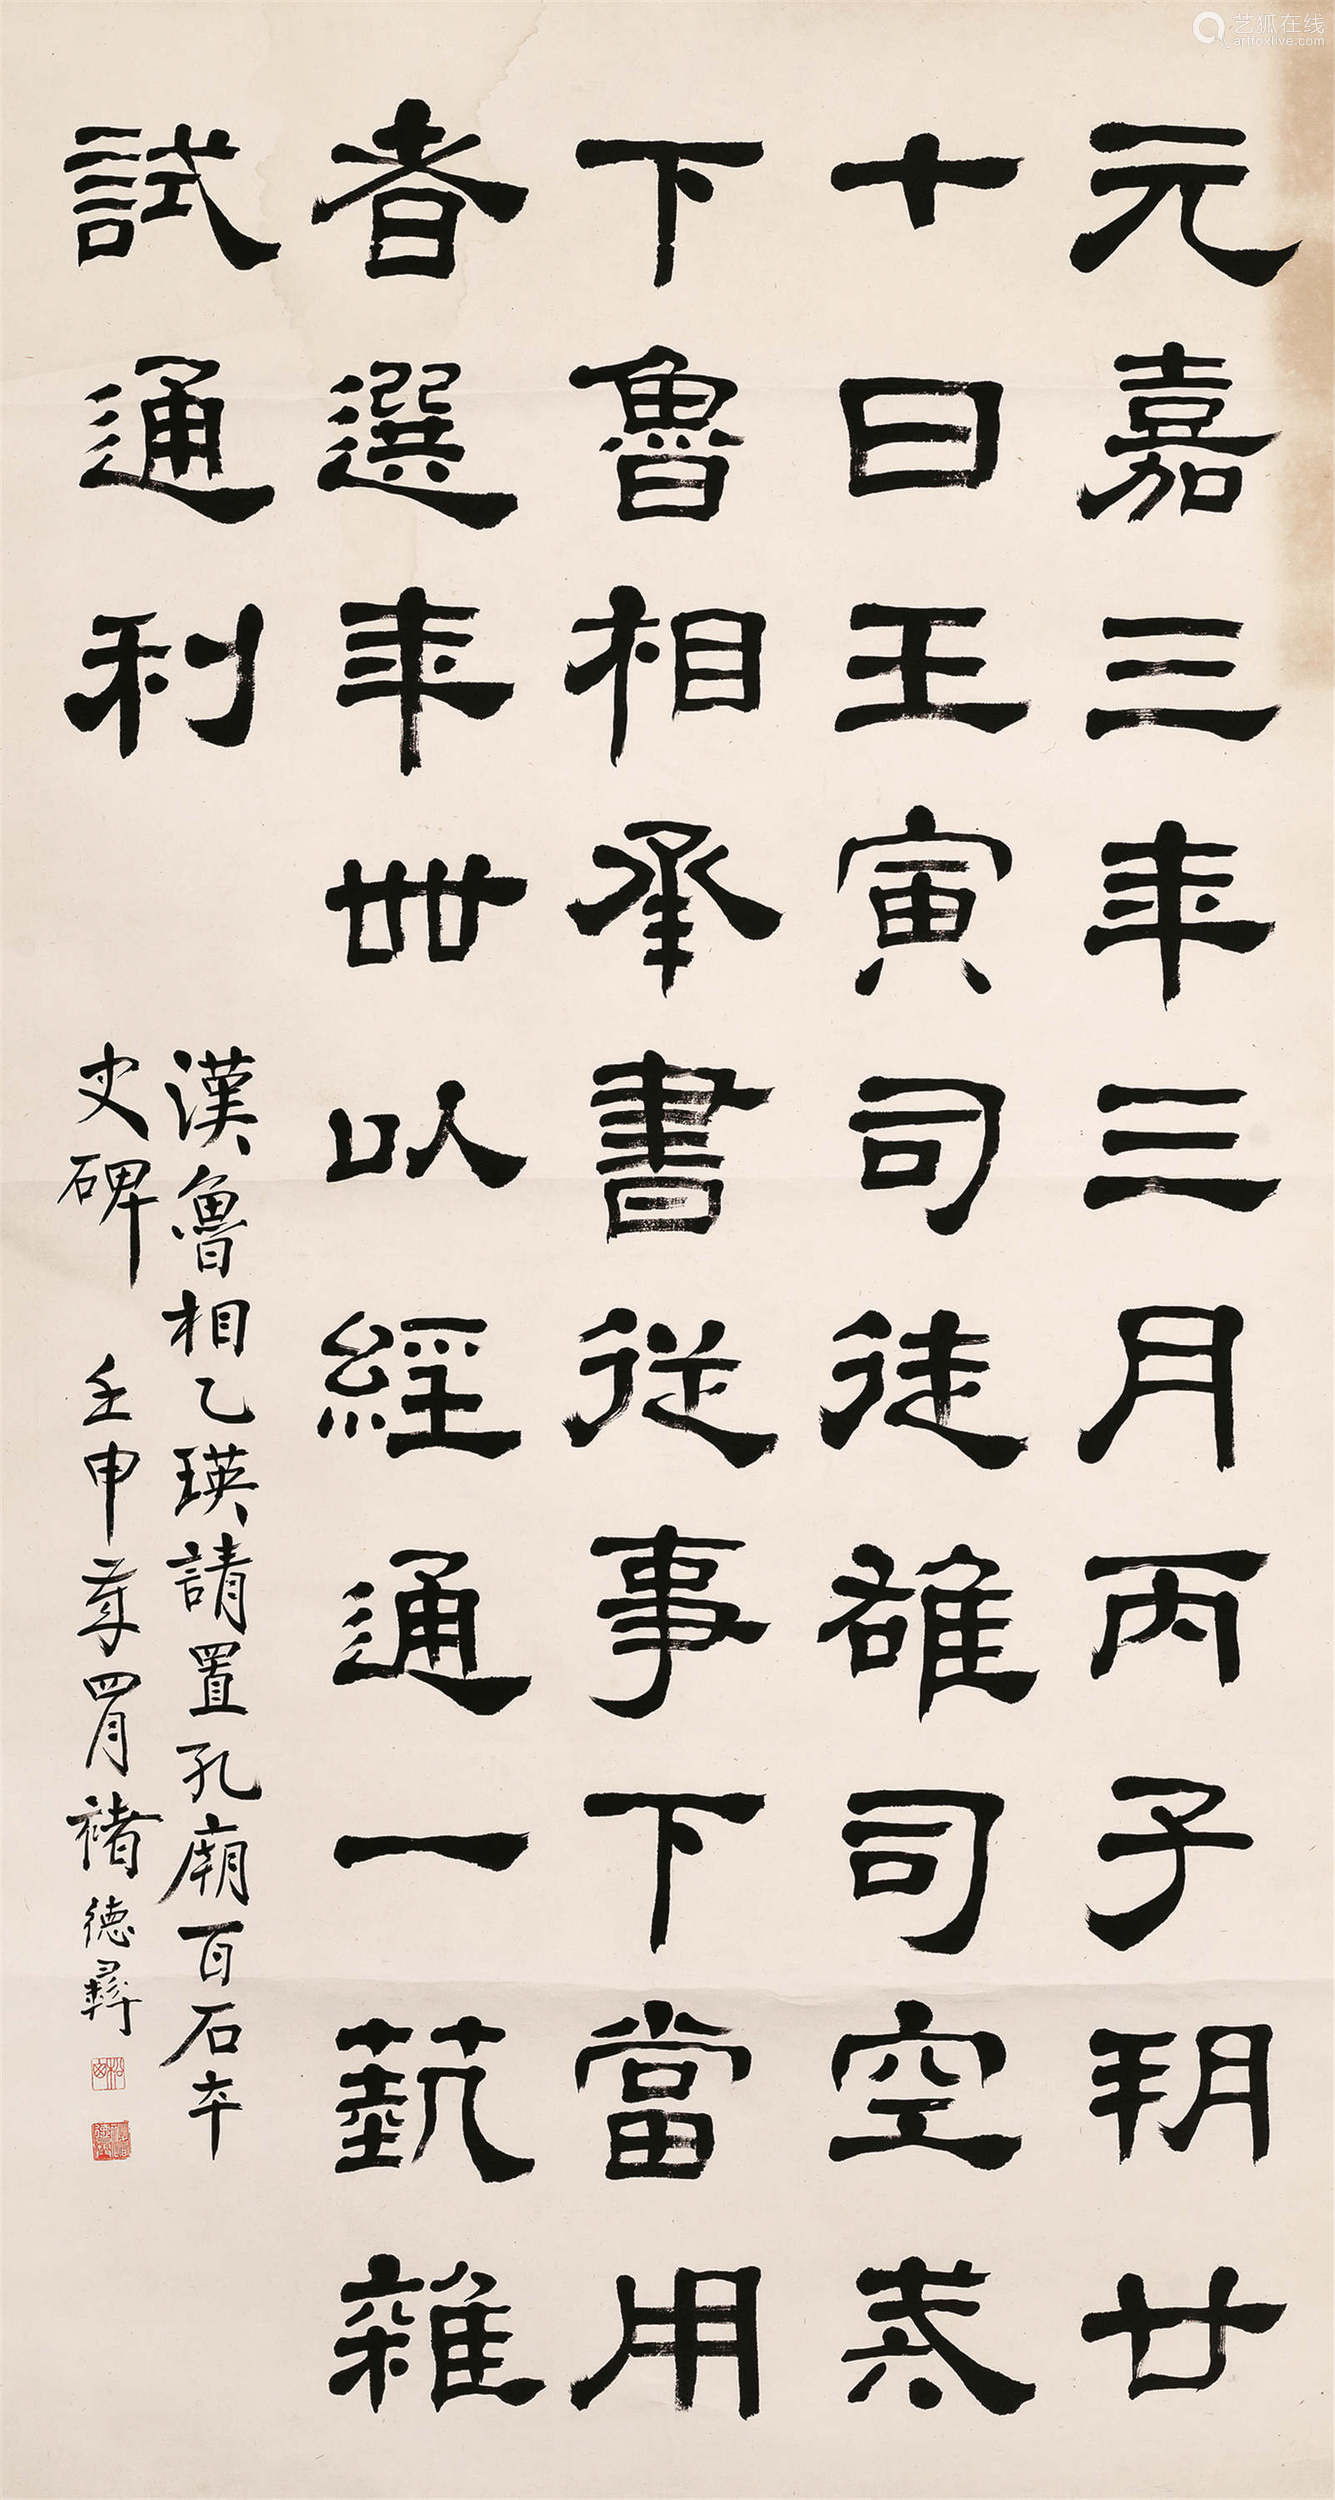 元嘉三年三月丙子朔廿
七日壬寅司徒雄司空戒
下魯相承書從事下當用
者選年卌以經通一藝雜
試通利
漢魯相乙瑛請置孔廟百石卒
史碑 壬申年四月褚德彝
艺狐在线
artfoxlive.com